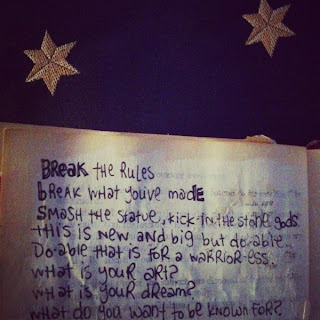 BREAK the RULES
bREAK WHAT YOU'VE MADE
SMASH the STATUE, KICK-IN the STONE gods.
this is NEW AND big but do-able.
Do-Able that is foR A WARRIOR-ess.
WHAT is YOUR ARt?
WHAT is YOUR dREAM?
WHAT do YOU WANT to bE KNOWN FOR?